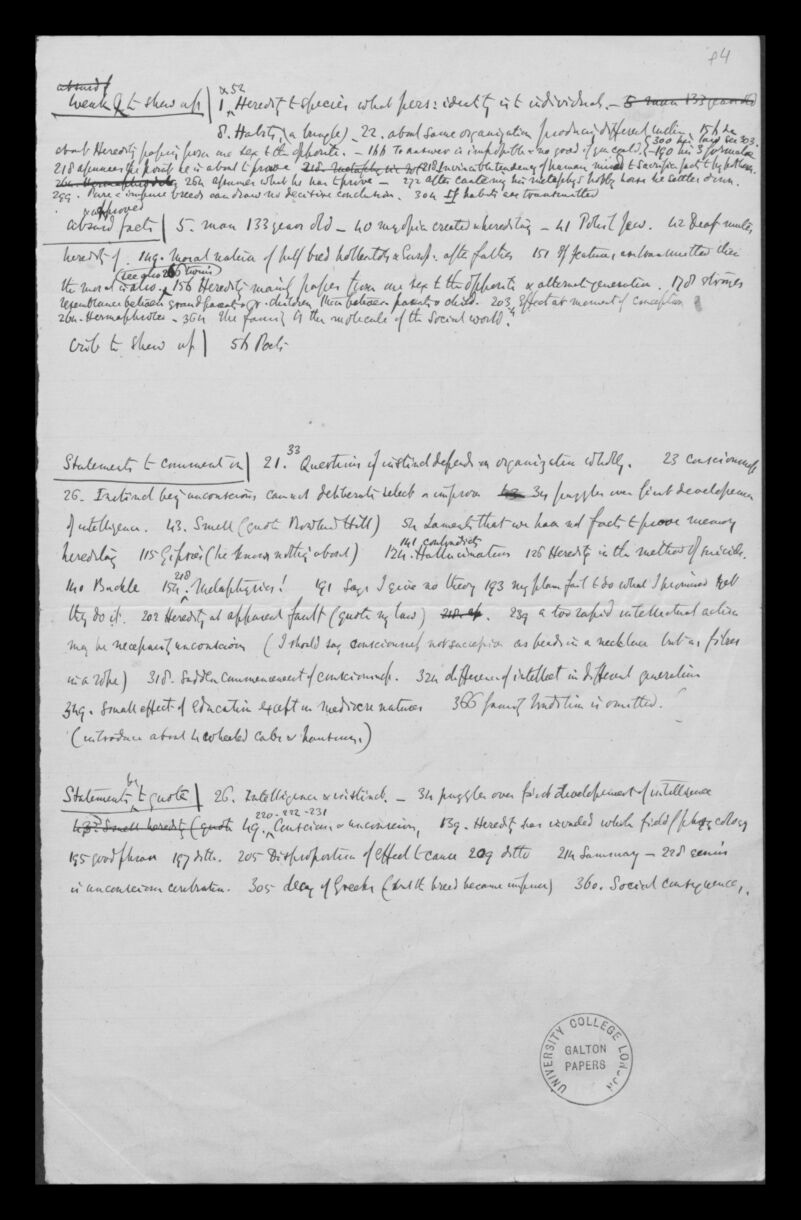 24
absurd &
weak Qs to shew up | 1, & 52 Heredity to species what pers: identity is to individual. — 5 man 133 years old
8. Habits (a laugh) – 22. about same organization producing different
about Heredity passing from one sex to the opposite. – 166 To answer is impossible & no good if you could, – 190 his 3 formulae 300 303.
218 assumes the point he is about to prove 218 Invincible tendency of human mind to sacrifice facts to hypothesis.
264 Hermaphrodites 264 assumes what he has to prove – 272 after cantering his metaphys: hobby horse he settles down.
299. Pure & impure breeds can draw no decisive conclusion. 304 If habits are transmitted
or unproved
absurd facts | 5. man 133 years old – 40 myopia created & hereditary – 41 Polish Jew. 42 Deaf mutes,
heredity of. 149. moral nature of half bred hottentots & Europ: after father 151 If features are transmitted then
the moral is also. (see also 266 twins) 156 Heredity mainly passes from one sex to the opposite & alternate generation. 178 stronger
resemblance between grandparents & gr. children than between parents & child. 203 Effect at moment of conception
264. Hermaphrodites – 364 "The family is the molecule of the social world."
crib to shew up | 56 Poets
Statements to comment on | 21. 33 Questions if instinct depends on organization wholly. 23 consciousness
26. Instinct being unconscious cannot deliberate select or improve 34 puzzles over first developement
of intelligence. 43. Smell (quote Rowland Hill) 54 Laments that we have not facts to prove memory
hereditary 115 Gipsies (he knows nothing about) 124. 141 contradicts Hallucinations 126 Heredity in the method of suicide.
140 Buckle 154. 218 Metaphysics! 191 Says I give no theory 193 my plan fails to do what I promised
they do it. 202 Heredity at apparent fault (quote my law) 239 a too rapid intellectual action
may be necessarily unconscious (I should say consciousness not succession as beads in a necklace but as fibres
in a rope) 318. Sudden commencement of consciousness. 324 difference of intellect in different generations
349. Small effect of Education except in mediocre natures 366 family tradition is omitted.
(introduce about 4 wheeled cabs & hansoms.)
Statements to be quoted | 26. Intelligence & instinct. – 34 puzzles over first developement of intelligence
43? Smell heredity (quote 49. 220-222-231 Conscious & unconscious, 139. Heredity has invaded whole field of physcology
195 good phrase 197 ditto. 205 Disproportion of effect to cause 209 ditto 214 Summary – 228 genius
is unconscious cerebration. 305 decay of Greeks (but the breed became impure) 360. Social consequences,.
UNIVERSITY COLLEGE LONDON
GALTON
PAPERS